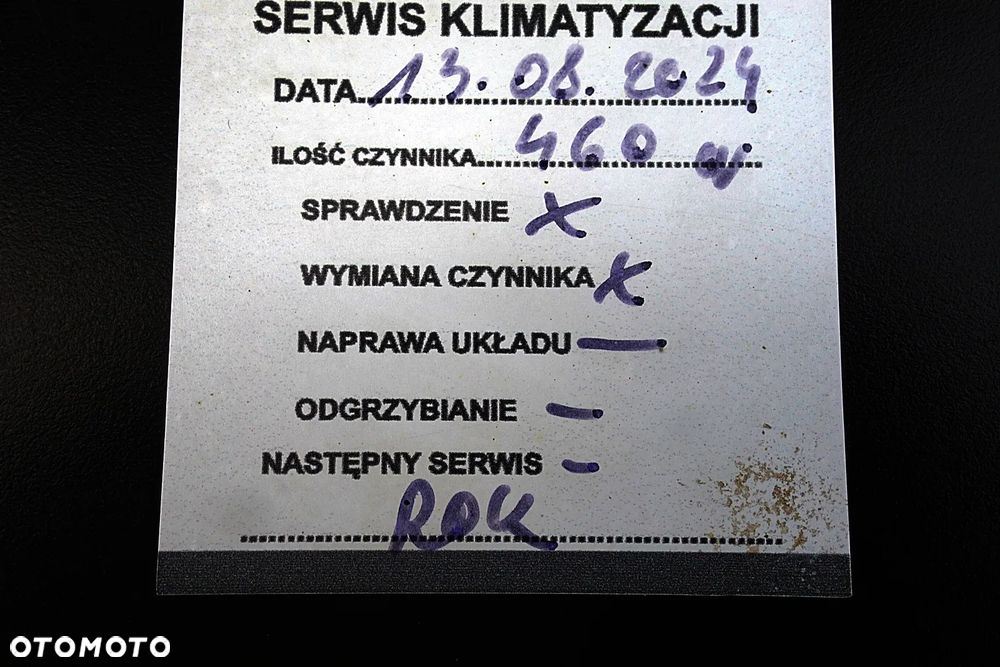 SERWIS KLIMATYZACJI
DATA 13.08.2024
ILOŚĆ CZYNNIKA 460 g
SPRAWDZENIE X
WYMIANA CZYNNIKA X
NAPRAWA UKŁADU —
ODGRZYBIANIE —
NASTĘPNY SERWIS –
ROK
OTOMOTO